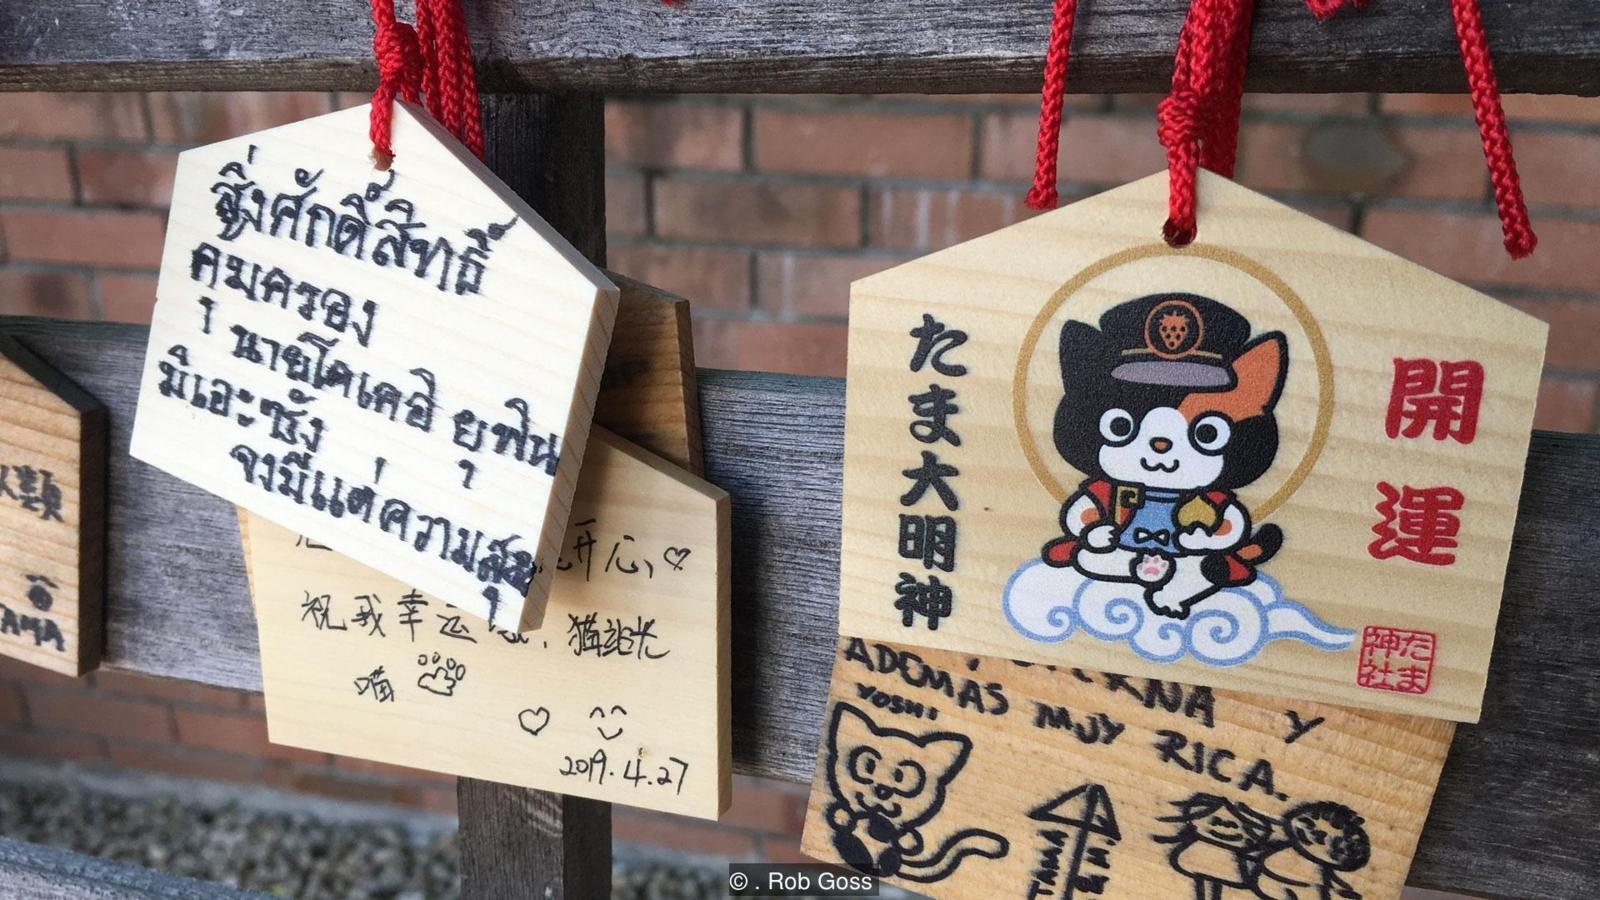 สิ่งศักดิ์สิทธิ์
คุมครอง
นายโคเคอิ
มิเอะซัง
จงมีแต่ความสุข
开心
祝我幸运
猫站长
喵
2019.4.27
類
AMA
開運
たま大明神
たま
神社
Y
ADEMAS MUY RICA.
YOSHI
TAMA
© . Rob Goss